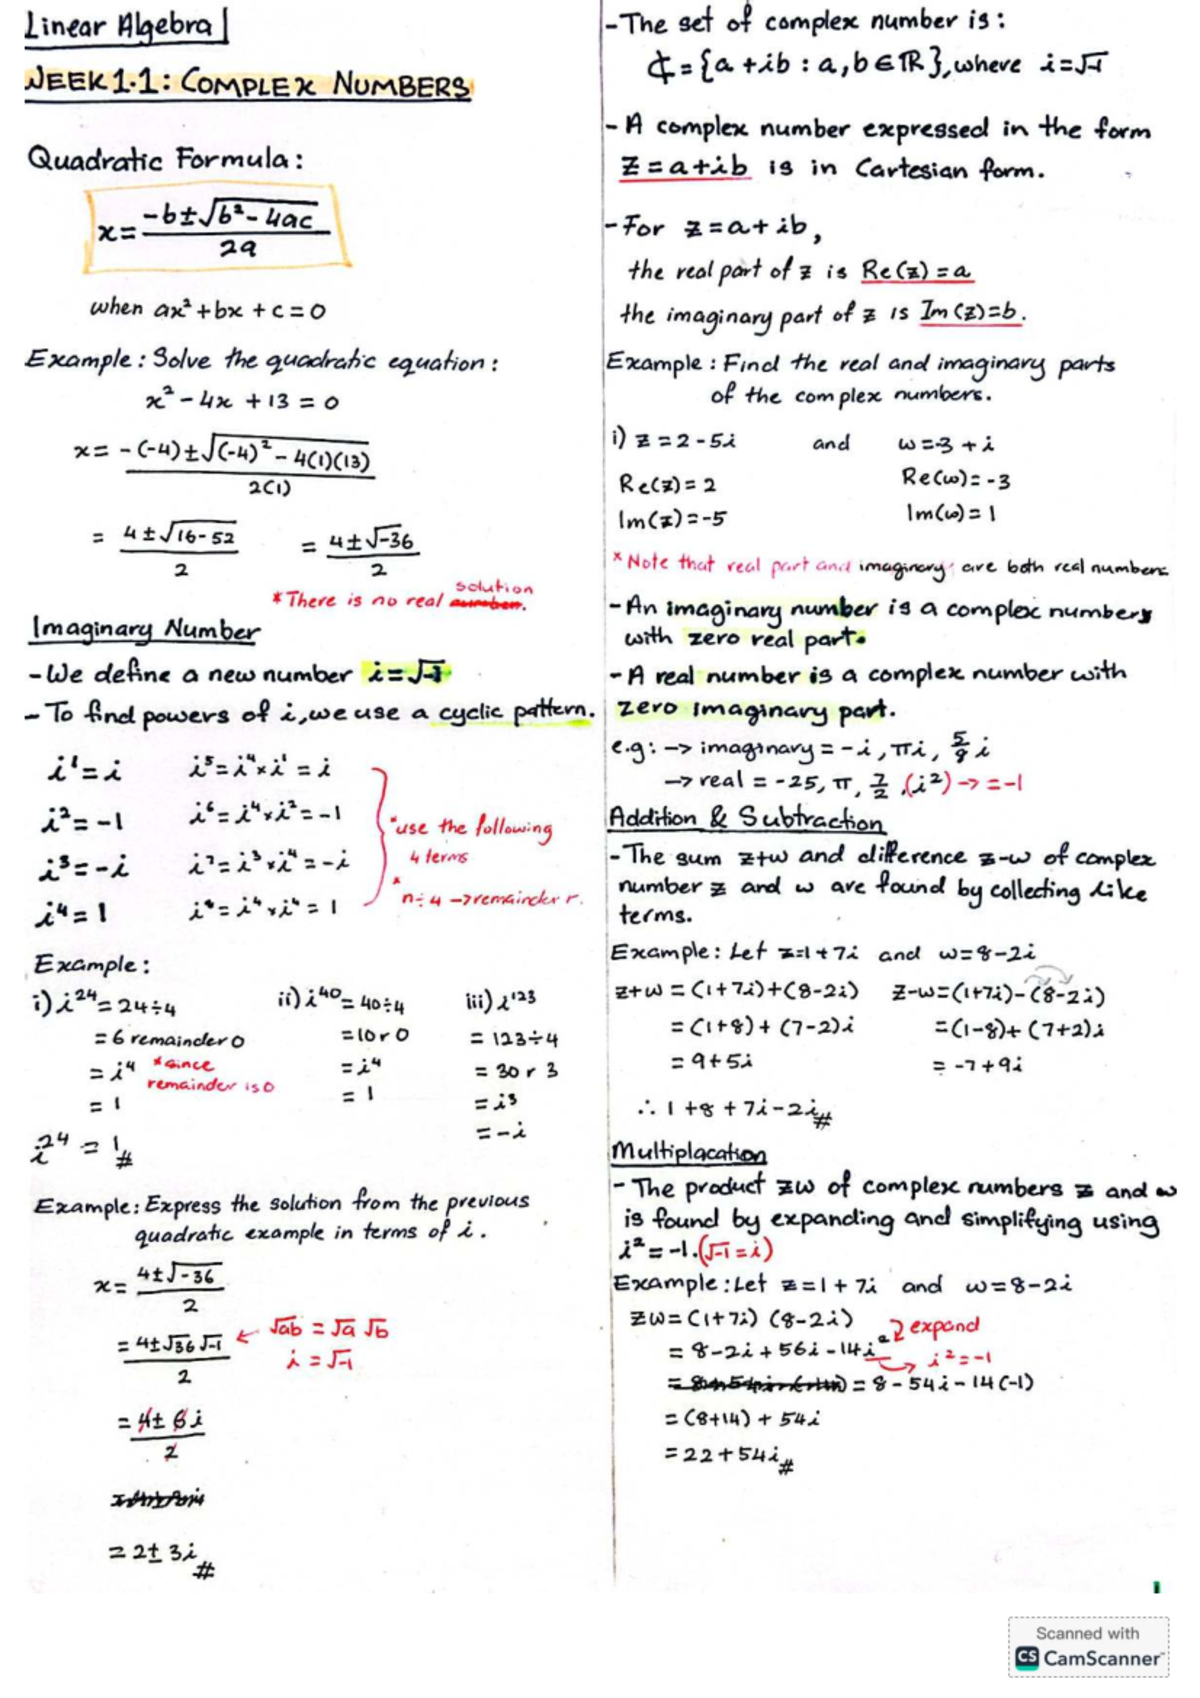 Linear Algebra
WEEK 1.1: COMPLEX NUMBERS
Quadratic Formula:
x = (-b ± √(b² - 4ac)) / 2a
when ax² + bx + c = 0
Example: Solve the quadratic equation:
x² - 4x + 13 = 0
x = (-(-4) ± √((-4)² - 4(1)(13))) / 2(1)
= (4 ± √(16-52)) / 2 = (4 ± √-36) / 2
* There is no real solution.
Imaginary Number
- We define a new number i = √-1
- To find powers of i, we use a cyclic pattern.
i¹ = i i⁵ = i⁴ × i¹ = i
i² = -1 i⁶ = i⁴ × i² = -1
i³ = -i i⁷ = i³ × i⁴ = -i
i⁴ = 1 i⁸ = i⁴ × i⁴ = 1
* use the following
4 terms
* n ÷ 4 → remainder r.
Example:
i) i²⁴ = 24 ÷ 4
= 6 remainder 0
= i⁴ * since
remainder is 0
= 1
i²⁴ = 1 #
ii) i⁴⁰ = 40 ÷ 4
= 10 r 0
= i⁴
= 1
iii) i¹²³
= 123 ÷ 4
= 30 r 3
= i³
= -i
Example: Express the solution from the previous
quadratic example in terms of i.
x = (4 ± √-36) / 2
= (4 ± √36 √-1) / 2 ← √ab = √a √b
i = √-1
= (4 ± 6i) / 2
= 2 ± 3i #
- The set of complex number is:
ℂ = {a + ib : a, b ∈ ℝ}, where i = √-1
- A complex number expressed in the form
z = a + ib is in Cartesian form.
- For z = a + ib,
the real part of z is Re(z) = a
the imaginary part of z is Im(z) = b.
Example: Find the real and imaginary parts
of the complex numbers.
i) z = 2 - 5i and w = -3 + i
Re(z) = 2 Re(w) = -3
Im(z) = -5 Im(w) = 1
* Note that real part and imaginary are both real numbers
- An imaginary number is a complex numbers
with zero real part.
- A real number is a complex number with
zero imaginary part.
e.g: → imaginary = -i, πi, 5/9 i
→ real = -25, π, 7/2, (i²) → = -1
Addition & Subtraction
- The sum z+w and difference z-w of complex
number z and w are found by collecting like
terms.
Example: Let z = 1 + 7i and w = 8 - 2i
z+w = (1+7i) + (8-2i) z-w = (1+7i) - (8-2i)
= (1+8) + (7-2)i = (1-8) + (7+2)i
= 9 + 5i = -7 + 9i
∴ 1 + 8 + 7i - 2i #
Multiplacation
- The product zw of complex numbers z and w
is found by expanding and simplifying using
i² = -1. (√-1 = i)
Example: Let z = 1 + 7i and w = 8 - 2i
zw = (1+7i) (8-2i)
expand
= 8 - 2i + 56i - 14i²
→ i² = -1
= 8 - 54i - 14(-1)
= (8+14) + 54i
= 22 + 54i #
1
Scanned with
CS CamScanner